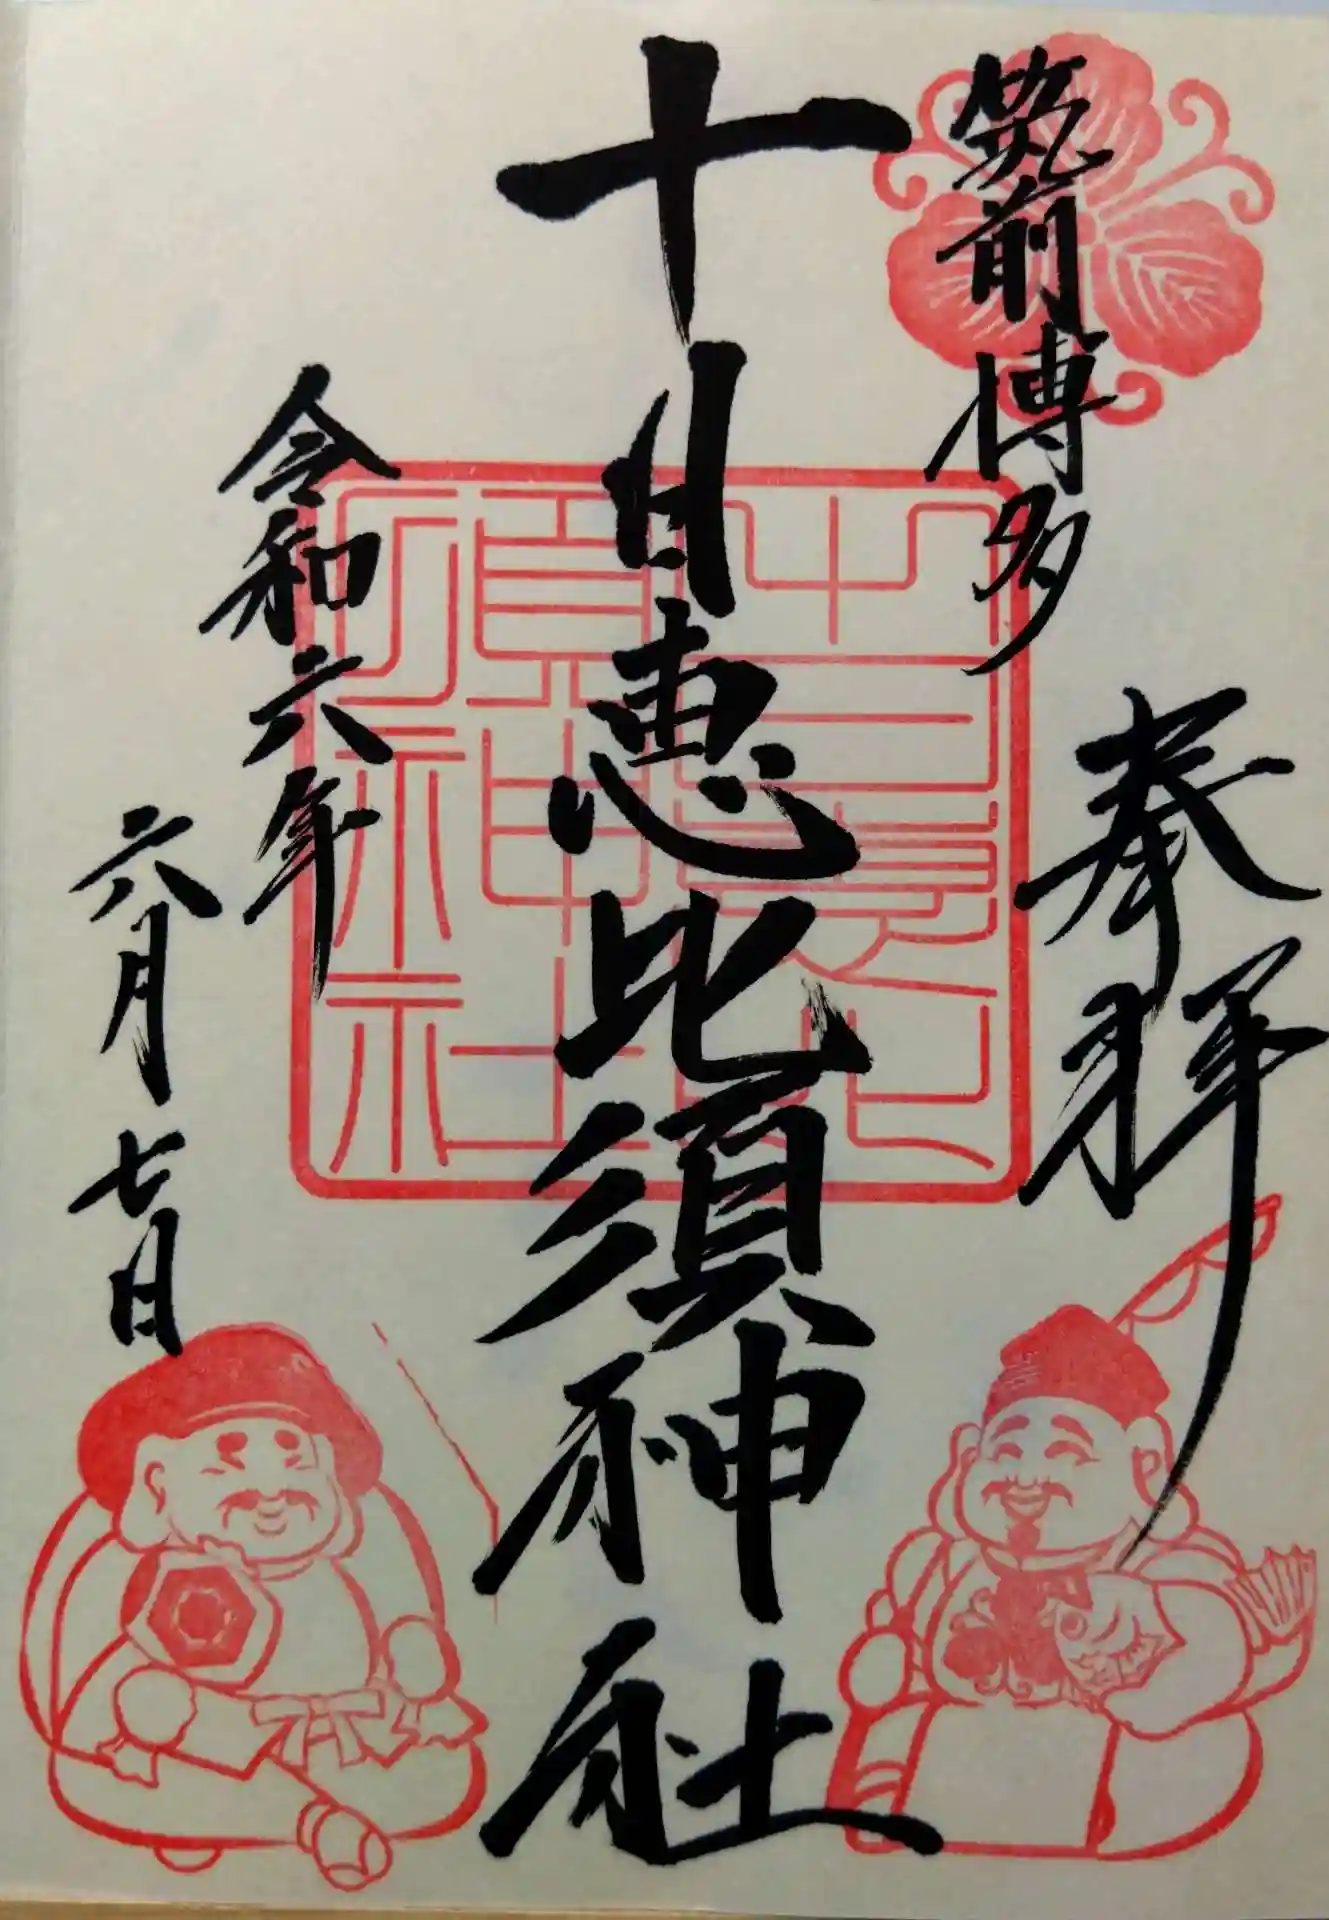 奉拝
筑前博多
十日恵比須神社
令和六年
六月七日
十日恵比須神社